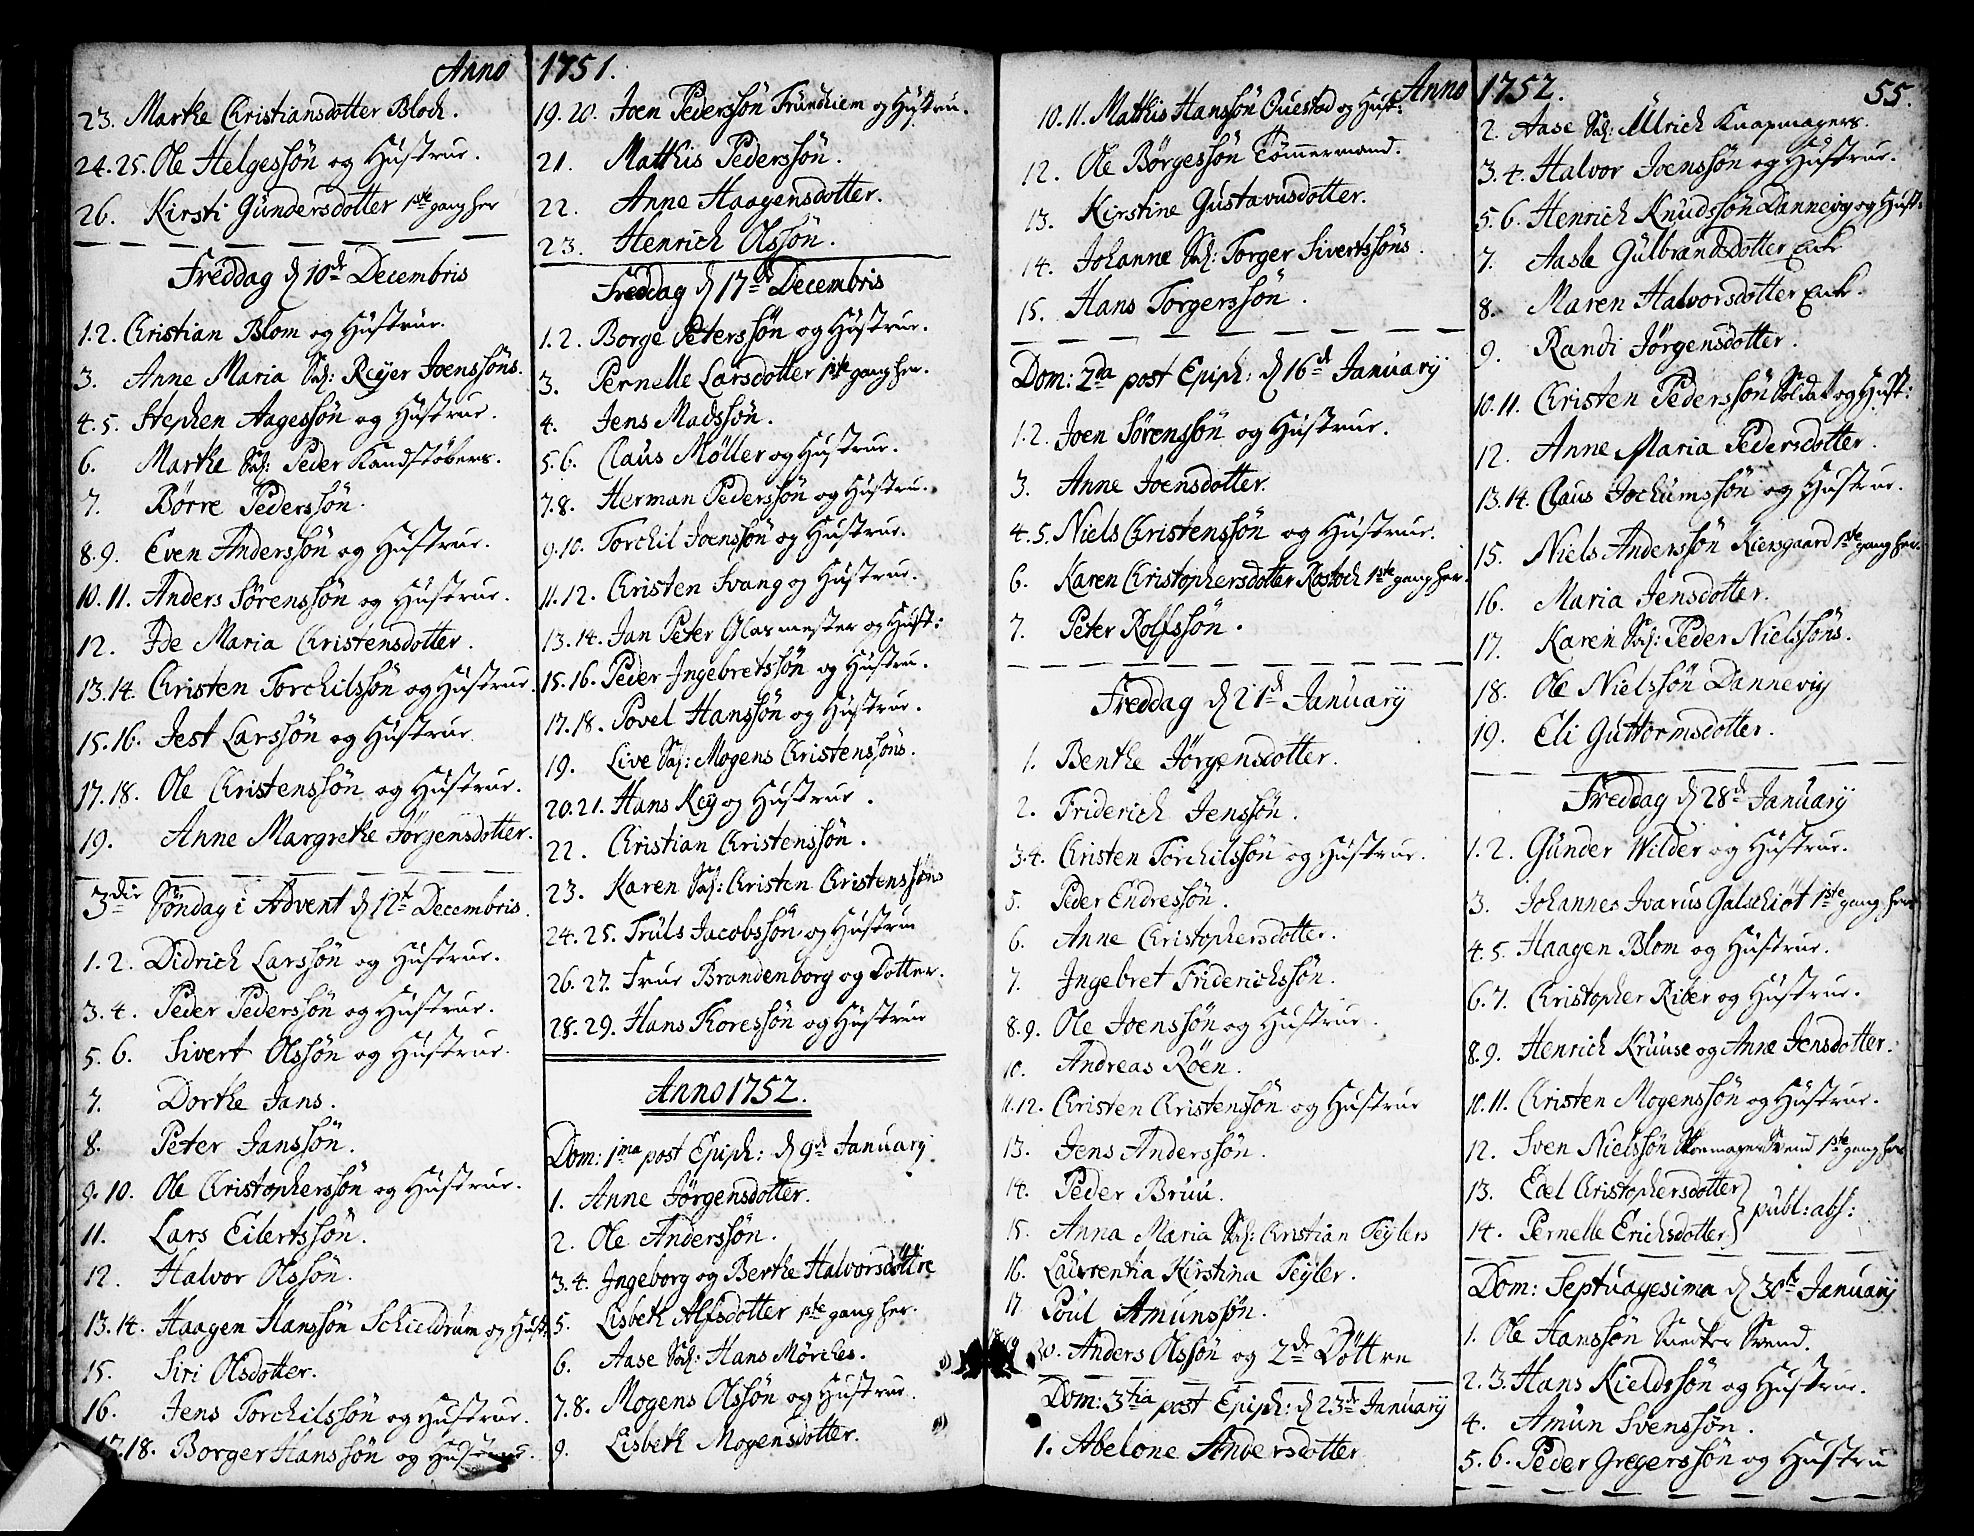 Anno 1751.
23. Marthe Christiansdotter Bloch.
24. 25. Ole Helgessøn og Hustrue.
26. Kirsti Gundersdotter 1ste gang her
Freddag d 10de Decembris
1. 2. Christian Blom og Hustrue.
3. Anne Maria Sal: Reyer Joenssøns.
4. 5. Stephen Aagessøn og Hustrue.
6. Marthe Sal: Peder Kandstøbers.
7. Børre Pederssøn.
8. 9. Even Anderssøn og Hustrue.
10. 11. Anders Sørenssøn og Hustrue.
12. Ide Maria Christensdotter.
13. 14. Christen Torchilssøn og Hustrue.
15. 16. Jest Larssøn og Hustrue
17. 18. Ole Christenssøn og Hustrue.
19. Anne Margrethe Jørgensdotter.
3die Søndag i Advent d 12te Decembris.
1. 2. Didrich Larssøn og Hustrue.
3. 4. Peder Pederssøn og Hustrue.
5. 6. Sivert Olssøn og Hustrue.
7. Dorthe Jans.
8. Peter Janssøn.
9. 10. Ole Christopherssøn og Hustrue.
11. Lars Eilertssøn.
12. Halvor Olssøn.
13. 14. Haagen Hanssøn Schieldrum og Hust:
15. Siri Olsdotter.
16. Jens Torchilssøn og Hustrue.
17. 18. Borger Hanssøn og Hustrue.
19. 20. Joen Pederssøn Trundhiem og Hustru.
21. Mathis Pederssøn.
22. Anne Haagensdotter.
23. Henrich Olssøn.
Freddag d 17de Decembris
1. 2. Borge Peterssøn og Hustrue.
3. Pernelle Larsdotter 1ste gang her.
4. Jens Madssøn.
5. 6. Claus Møller og Hustrue.
7. 8. Herman Pederssøn og Hustru.
9. 10. Torchil Joenssøn og Hustrue.
11. 12. Christen Svang og Hustrue.
13. 14. Jan Peter Glasmester og Hust:
15. 16. Peder Ingebretssøn og Hustru.
17. 18. Povel Hanssøn og Hustrue.
19. Live Sal: Mogens Christenssøns.
20. 21. Hans Key og Hustrue.
22. Christian Christenssøn.
23. Karen Sal: Christen Christenssøns
24. 25. Truls Jacobssøn og Hustrue
26. 27. Frue Brandenborg og Dotter.
28. 29. Hans Thoressøn og Hustrue
Anno 1752.
Dom: 1ma post Epiph: d 9de January
1. Anne Jørgensdotter.
2. Ole Anderssøn.
3. 4. Ingeborg og Berthe Halvorsdøttre
5. Lisbeth Alfsdotter 1ste gang her.
6. Aase Sal: Hans Mørches.
7. 8. Mogens Olssøn og Hustrue.
9. Lisbeth Mogensdotter.
Anno 1752. 55.
10. 11. Mathis Hanssøn Questad og Hust:
12. Ole Børgessøn Tømmermand.
13. Kirstine Gustavusdotter.
14. Johanne Sal: Torger Sivertssøns.
15. Hans Torgerssøn.
Dom: 2da post Epiph: d 16de January
1. 2. Joen Sørenssøn og Hustrue.
3. Anne Joensdotter.
4. 5. Niels Christenssøn og Hustrue.
6. Karen Christophersdotter Rostoch 1ste gang her.
7. Peter Rolfssøn.
Freddag d 21de January
1. Benthe Jørgensdotter.
2. Friderich Jenssøn.
3. 4. Christen Torchilssøn og Hustrue.
5. Peder Endressøn.
6. Anne Christophersdotter.
7. Ingebret Friderichssøn.
8. 9. Ole Joenssøn og Hustrue.
10. Andreas Røen.
11. 12. Christen Christenssøn og Hustrue
13. Jens Anderssøn.
14. Peder Bruu.
15. Anna Maria Sal: Christian Teylers
16. Laurentia Kirstina Teyler.
17 Poul Amunssøn.
18. 19. 20. Anders Olssøn og 2de Døttre
Dom: 3tia post Epiph: d 23de January
1. Abelone Andersdotter
2. Aase Sal: Ulrich Knapmagers.
3. 4. Halvor Joenssøn og Hustrue.
5. 6. Henrich Knudssøn Dannevig og Hust:
7. Aasle Gulbrandsdotter Enke
8. Maren Halvorsdotter Enke.
9. Randi Jørgensdotter.
10. 11. Christen Pederssøn Soldat og Hust:
12. Anne Maria Pedersdotter.
13. 14. Claus Jochumssøn og Hustrue.
15. Niels Anderssøn Kiersgaard 1ste gang her.
16. Maria Jensdotter.
17. Karen Sal: Peder Nielssøns.
18. Ole Nielssøn Dannevig
19. Eli Guttormsdotter.
Freddag d 28de January
1. 2. Gunder Wilder og Hustrue.
3. Johannes Ivarus Galschiøt 1ste gang her
4. 5. Haagen Blom og Hustrue.
6. 7. Christopher Riber og Hustrue.
8. 9. Henrich Kruuse og Anne Jensdotter.
10. 11. Christen Mogenssøn og Hustrue.
12. Sven Nielssøn Skomager Svend 1ste gang her
13. Edel Christophersdotter
14. Pernelle Erichsdotter } publ: abs:
Dom: Septuagesima d 30te January
1. Ole Hanssøn Snedker Svend.
2. 3. Hans Kieldssøn og Hustrue.
4. Amun Svenssøn.
5. 6. Peder Gregerssøn og Hustru